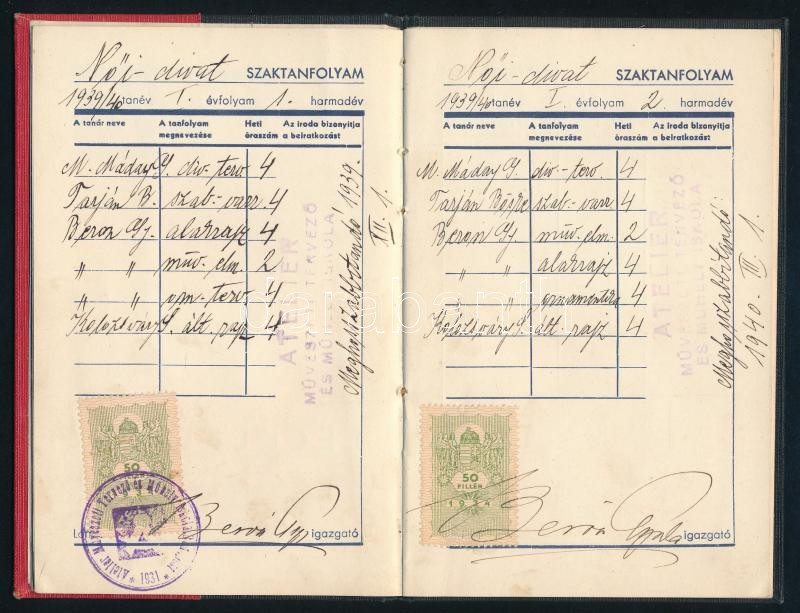 Női-divat SZAKTANFOLYAM
1939/40 tanév I. évfolyam 1. harmadév
A tanár neve A tanfolyam megnevezése Heti óraszám Az iroda bizonyítja a beiratkozást
M. Máday G. div-terv. 4
Tarján B. szab.-varr 4
Beron Gy. alakrajz 4
" " műv. elm. 2
" " orn-terv. 4
Kolozsváry S. ált. rajz 4
ATELIER
MŰVÉSZETI TERVEZŐ
ÉS MŰHELYISKOLA
Meghosszabbítandó 1939.
XII. 1.
50
1931
igazgató
Női-divat SZAKTANFOLYAM
1939/40 tanév I. évfolyam 2. harmadév
A tanár neve A tanfolyam megnevezése Heti óraszám Az iroda bizonyítja a beiratkozást
M. Máday G. div.-terv. 4
Tarján Böske szab-varr 4
Beron Gy. műv. elm. 2
" " alakrajz 4
" " ornamentika 4
Kolozsváry S. ált. rajz 4
ATELIER
MŰVÉSZETI TERVEZŐ
ÉS MŰHELYISKOLA
Meghosszabbítandó:
1940. III. 1.
50
FILLÉR
1934
igazgató
darabanth